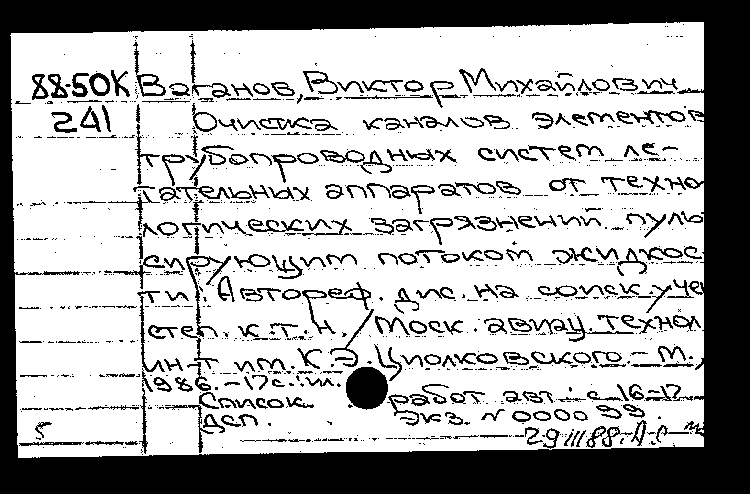 88-50К Ваганов, Виктор Михайлович
241 Очистка каналов элементов
трубопроводных систем ле-
тательных аппаратов от техно
логических загрязнений пуль
сирующим потоком жидкос
ти. Автореф. дис. на соиск. уче
степ. к.т.н. / Моск. авиац. технол
ин-т им. К.Э. Циолковского. - М.,
1986. - 17 с.: ил.
Список работ авт.: с 16-17
ДСП. Экз. N 000099.
5 29 III 88.